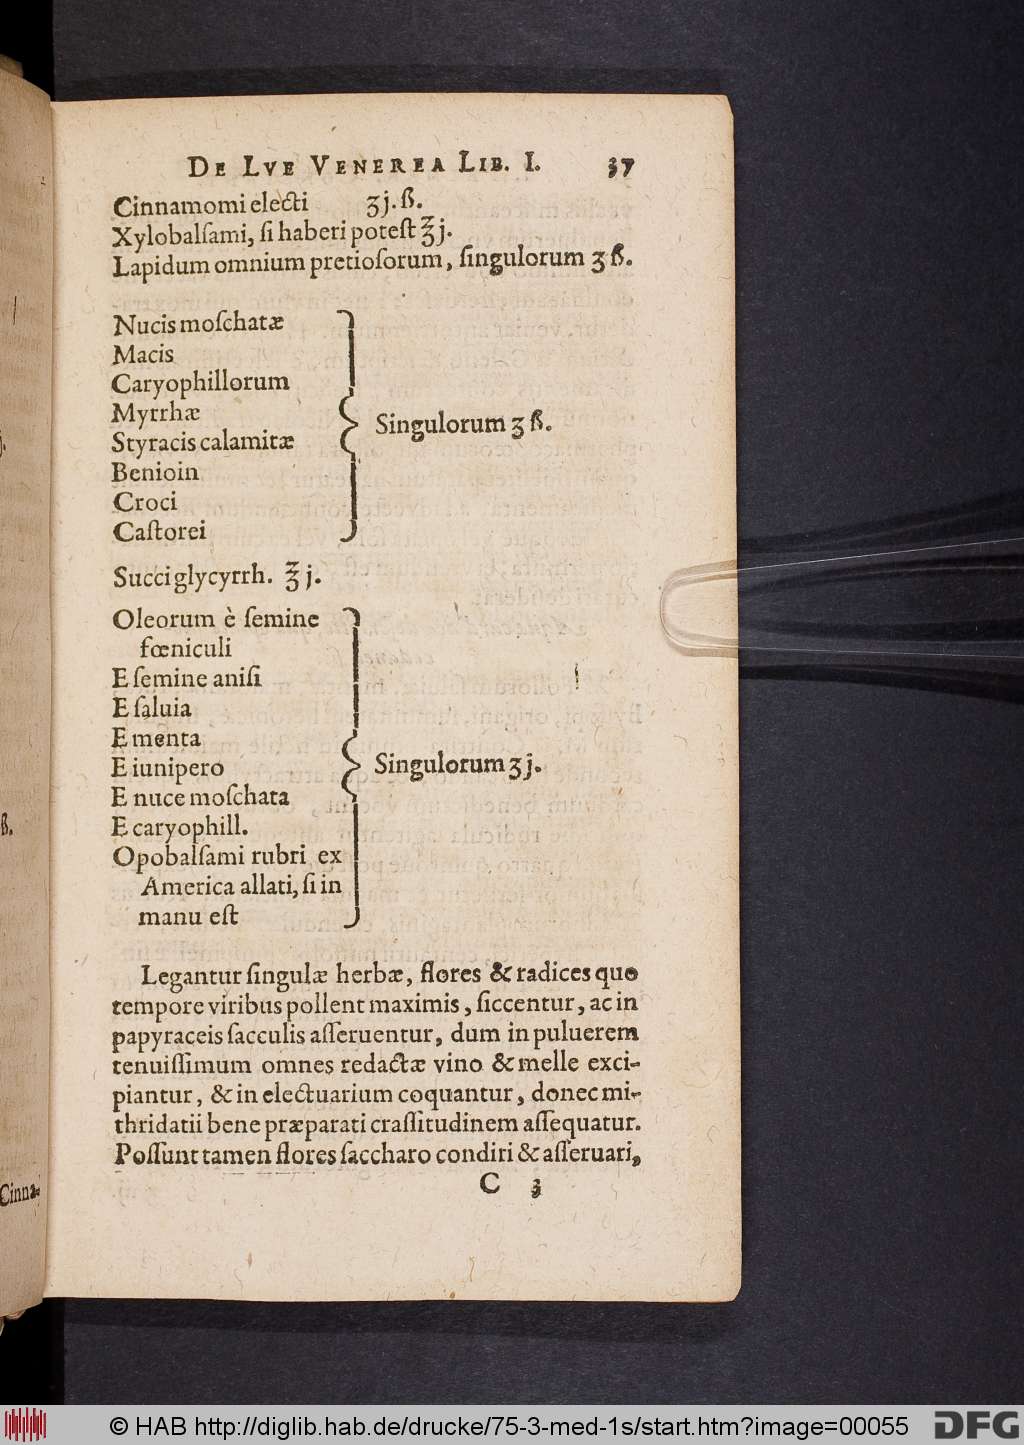 DE LVE VENEREA LIB. I. 37
Cinnamomi electi ʒj.ß.
Xylobalſami, ſi haberi poteſt ℥j.
Lapidum omnium pretioſorum, ſingulorum ʒß.
Nucis moſchatæ
Macis
Caryophillorum
Myrrhæ
Styracis calamitæ
Benioin
Croci
Caſtorei
Singulorum ʒß.
Succi glycyrrh. ℥j.
Oleorum è ſemine
fœniculi
E ſemine aniſi
E ſaluia
E menta
E iunipero
E nuce moſchata
E caryophill.
Opobalſami rubri ex
America allati, ſi in
manu eſt
Singulorum ʒj.
Legantur ſingulæ herbæ, flores & radices quo
tempore viribus pollent maximis, ſiccentur, ac in
papyraceis ſacculis aſſeruentur, dum in puluerem
tenuiſſimum omnes redactæ vino & melle exci-
piantur, & in electuarium coquantur, donec mi-
thridatii bene præparati craſſitudinem aſſequatur.
Poſſunt tamen flores ſaccharo condiri & aſſeruari,
C 3
ß.
Cinna-
© HAB http://diglib.hab.de/drucke/75-3-med-1s/start.htm?image=00055
DFG